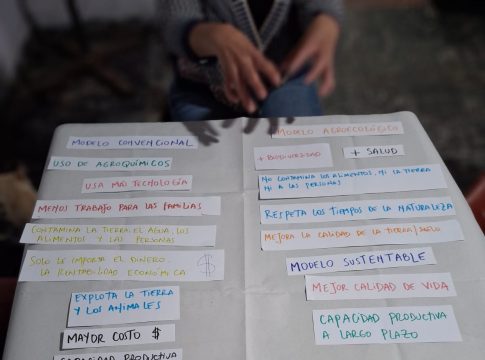 MODELO CONVENCIONAL
USO DE AGROQUÍMICOS
USA MÁS TECNOLOGÍA
MENOS TRABAJO PARA LAS FAMILIAS
CONTAMINA LA TIERRA EL AGUA, LOS
ALIMENTOS Y LAS PERSONAS
SOLO LE IMPORTA EL DINERO.
LA RENTABILIDAD ECONÓMICA $
EXPLOTA LA TIERRA
Y LOS ANIMALES
MAYOR COSTO $
CAPACIDAD PRODUCTIVA
MODELO AGROECOLÓGICO
+ BIODIVERSIDAD
+ SALUD
NO CONTAMINA LOS ALIMENTOS, NI LA TIERRA
NI A LAS PERSONAS
RESPETA LOS TIEMPOS DE LA NATURALEZA
MEJORA LA CALIDAD DE LA TIERRA/SUELO
MODELO SUSTENTABLE
MEJOR CALIDAD DE VIDA
CAPACIDAD PRODUCTIVA
A LARGO PLAZO